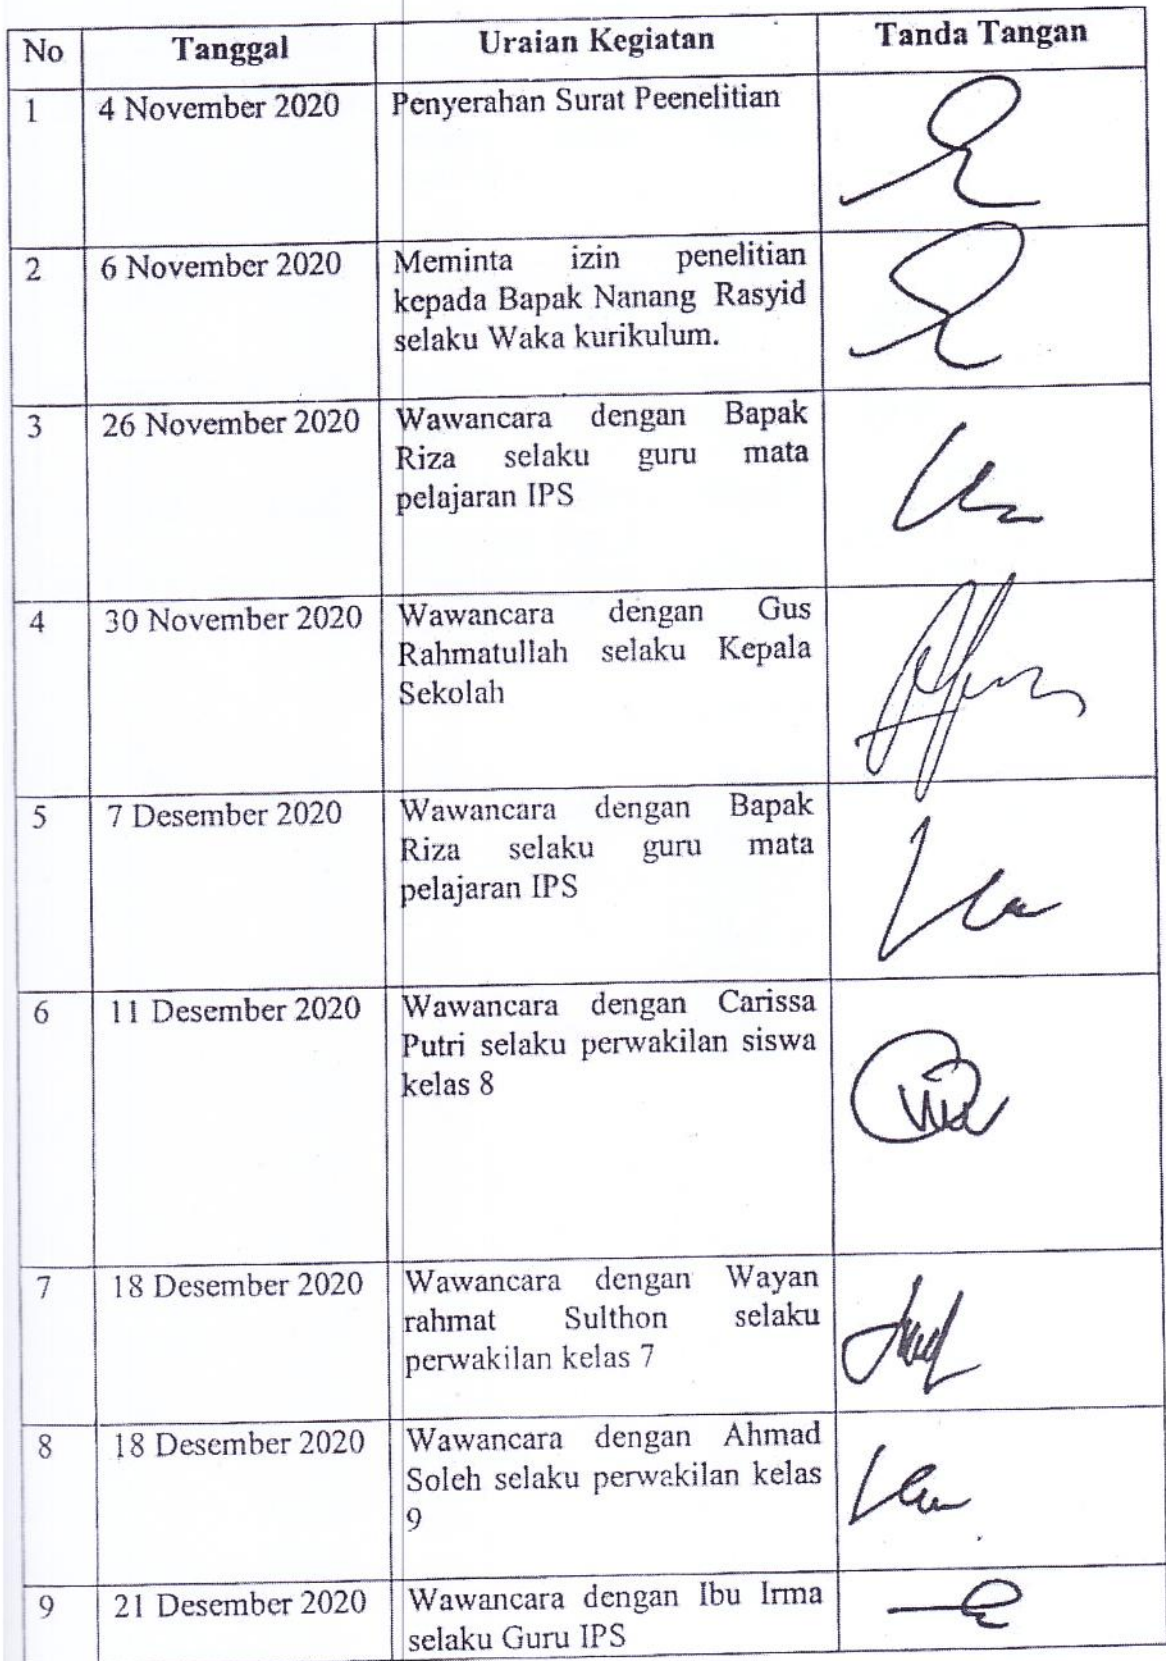 No Tanggal Uraian Kegiatan Tanda Tangan
1 4 November 2020 Penyerahan Surat Peenelitian
2 6 November 2020 Meminta izin penelitian
kepada Bapak Nanang Rasyid
selaku Waka kurikulum.
3 26 November 2020 Wawancara dengan Bapak
Riza selaku guru mata
pelajaran IPS
4 30 November 2020 Wawancara dengan Gus
Rahmatullah selaku Kepala
Sekolah
5 7 Desember 2020 Wawancara dengan Bapak
Riza selaku guru mata
pelajaran IPS
6 11 Desember 2020 Wawancara dengan Carissa
Putri selaku perwakilan siswa
kelas 8
7 18 Desember 2020 Wawancara dengan Wayan
rahmat Sulthon selaku
perwakilan kelas 7
8 18 Desember 2020 Wawancara dengan Ahmad
Soleh selaku perwakilan kelas
9
9 21 Desember 2020 Wawancara dengan Ibu Irma
selaku Guru IPS